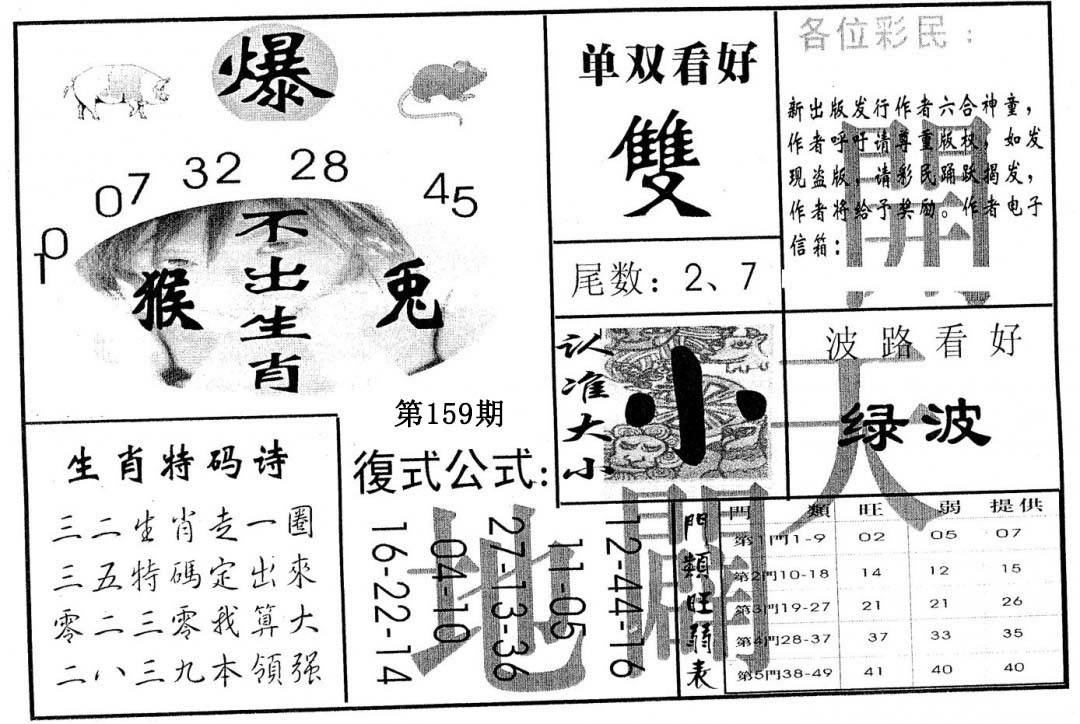 爆
10 07 32 28 45
不出生肖
猴
兔
单双看好
雙
尾数：2、7
各位彩民：
新出版发行作者六合神童，
作者呼吁请尊重版权，如发
现盗版，请彩民踊跃揭发，
作者将给予奖励。作者电子
信箱：
開天
闢地
认准大小
小
波路看好
绿波
第159期
生肖特码诗
三二生肖走一圈
三五特碼定出來
零二三零我算大
二八三九本領强
復式公式:
12-44-16
11-05
27-13-36
04-10
16-22-14
門類旺弱表
門類 旺 弱 提供
第1門1-9 02 05 07
第2門10-18 14 12 15
第3門19-27 21 21 26
第4門28-37 37 33 35
第5門38-49 41 40 40